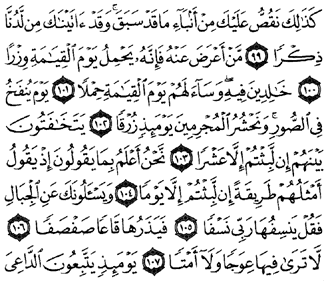 كَذَٰلِكَ نَقُصُّ عَلَيْكَ مِنْ أَنۢبَآءِ مَا قَدْ سَبَقَ ۚ وَقَدْ ءَاتَيْنَٰكَ مِن لَّدُنَّا
ذِكْرًا ٩٩ مَّنْ أَعْرَضَ عَنْهُ فَإِنَّهُۥ يَحْمِلُ يَوْمَ ٱلْقِيَٰمَةِ وِزْرًا
١٠٠ خَٰلِدِينَ فِيهِ ۖ وَسَآءَ لَهُمْ يَوْمَ ٱلْقِيَٰمَةِ حِمْلًا ١٠١ يَوْمَ يُنفَخُ
فِى ٱلصُّورِ ۚ وَنَحْشُرُ ٱلْمُجْرِمِينَ يَوْمَئِذٍ زُرْقًا ١٠٢ يَتَخَٰفَتُونَ
بَيْنَهُمْ إِن لَّبِثْتُمْ إِلَّا عَشْرًا ١٠٣ نَّحْنُ أَعْلَمُ بِمَا يَقُولُونَ إِذْ يَقُولُ
أَمْثَلُهُمْ طَرِيقَةً إِن لَّبِثْتُمْ إِلَّا يَوْمًا ١٠٤ وَيَسْـَٔلُونَكَ عَنِ ٱلْجِبَالِ
فَقُلْ يَنسِفُهَا رَبِّى نَسْفًا ١٠٥ فَيَذَرُهَا قَاعًا صَفْصَفًا ١٠٦
لَّا تَرَىٰ فِيهَا عِوَجًا وَلَآ أَمْتًا ١٠٧ يَوْمَئِذٍ يَتَّبِعُونَ ٱلدَّاعِىَ